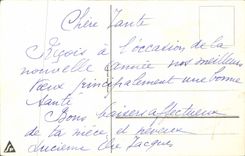 Chère Tante
Reçois à l'occasion de la
nouvelle année nos meilleurs
vœux principalement une bonne
santé
Bons baisers affectueux
de ta nièce et neveux
Lucienne Jacques